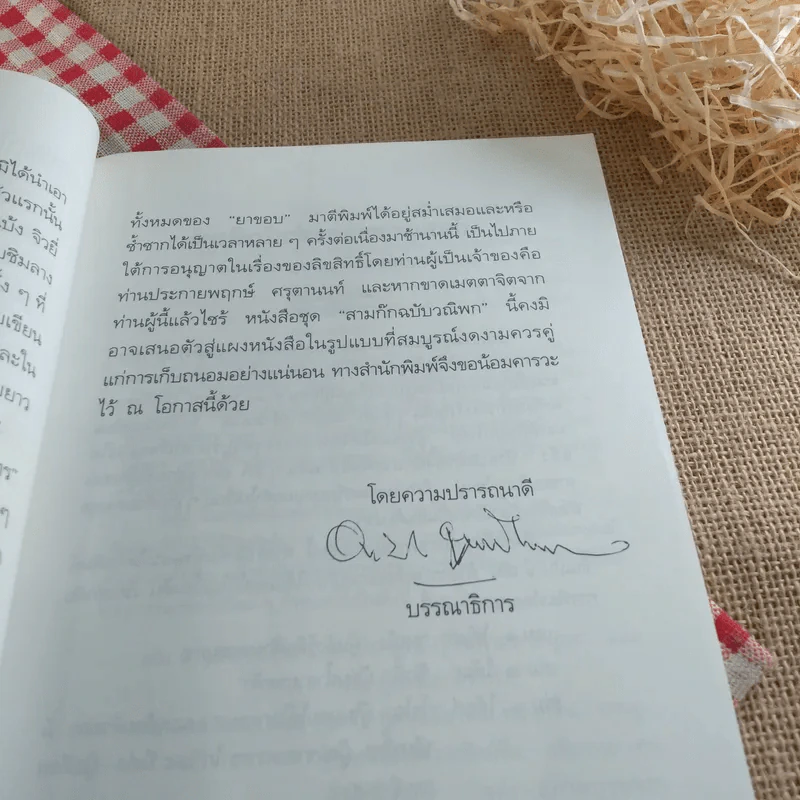 มิได้นำเอา
ัวแรกนั้น
แบ้ง จิวยี่
ซิมลาง
ั้ง ๆ ที่
เขียน
ละใน
ยาว
ทั้งหมดของ “ยาขอบ” มาตีพิมพ์ได้อยู่สม่ำเสมอและหรือ
ซ้ำซากได้เป็นเวลาหลาย ๆ ครั้งต่อเนื่องมาช้านานนี้ เป็นไปภาย
ใต้การอนุญาตในเรื่องของลิขสิทธิ์โดยท่านผู้เป็นเจ้าของคือ
ท่านประกายพฤกษ์ ศรุตานนท์ และหากขาดเมตตาจิตจาก
ท่านผู้นี้แล้วไซร้ หนังสือชุด “สามก๊กฉบับวณิพก” นี้คงมิ
อาจเสนอตัวสู่แผงหนังสือในรูปแบบที่สมบูรณ์งดงามควรคู่
แก่การเก็บถนอมอย่างแน่นอน ทางสำนักพิมพ์จึงขอน้อมคารวะ
ไว้ ณ โอกาสนี้ด้วย
โดยความปรารถนาดี
บรรณาธิการ